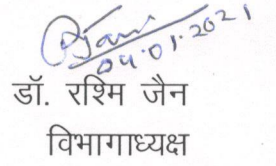 RJain
04.01.2021
डॉ. रश्मि जैन
विभागाध्यक्ष